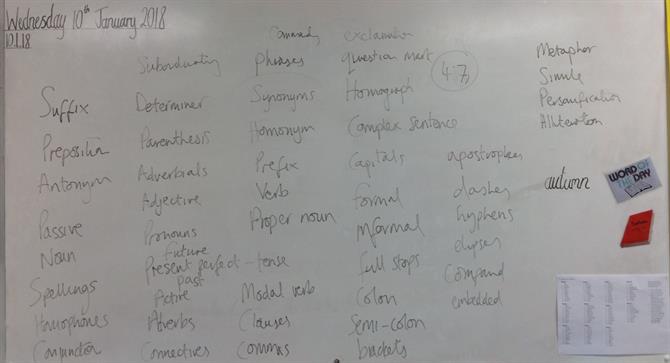 Wednesday 10th January 2018
10.1.18
Suffix
Preposition
Antonym
Passive
Noun
Spellings
Homophones
Conjunction
Subordinating
Determiner
Parenthesis
Adverbials
Adjective
Pronouns
future
Present perfect - tense
past
Active
Adverbs
Connectives
Commands
phrases
Synonyms
Homonym
Prefix
Verb
Proper noun
Modal verb
Clauses
commas
exclamation
question mark
Homograph
Complex sentence
Capitals
formal
informal
full stops
Colon
Semi-colon
brackets
apostrophes
dashes
hyphens
elipses
Compound
embedded
Metaphor
Simile
Personification
Alliteration
autumn
WORD OF
THE DAY